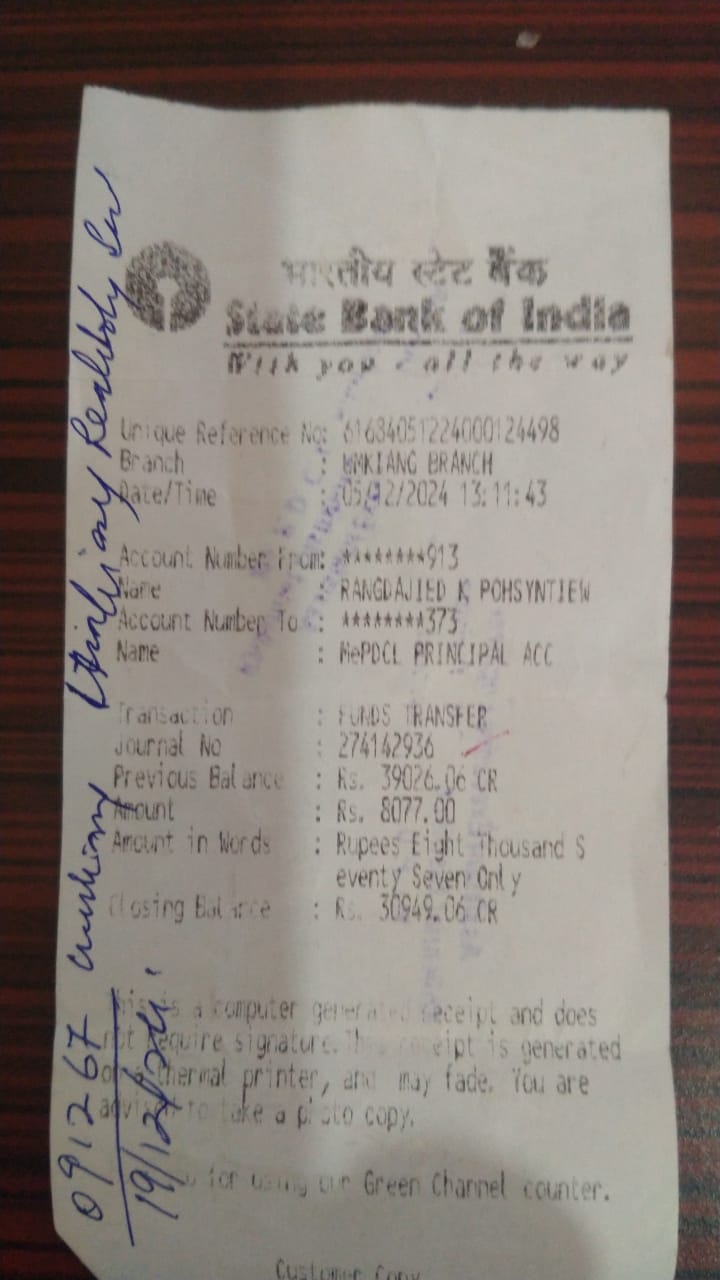 भारतीय स्टेट बैंक
State Bank of India
With you - all the way
Unique Reference No: 61684051224000124498
Branch : UMKIANG BRANCH
Date/Time : 05/12/2024 13:11:43
Account Number From: ********913
Name : RANGDAJIED K POHSYNTIEW
Account Number To : ********373
Name : MePDCL PRINCIPAL ACC
Transaction : FUNDS TRANSFER
Journal No : 274142936
Previous Balance : Rs. 39026.06 CR
Amount : Rs. 8077.00
Amount in Words : Rupees Eight Thousand S
eventy Seven Only
Closing Balance : Rs. 30949.06 CR
This is a computer generated receipt and does
not require signature. This receipt is generated
on a thermal printer, and may fade. You are
advised to take a photo copy.
for using our Green Channel counter.
Customer Copy
091267
19/12/24